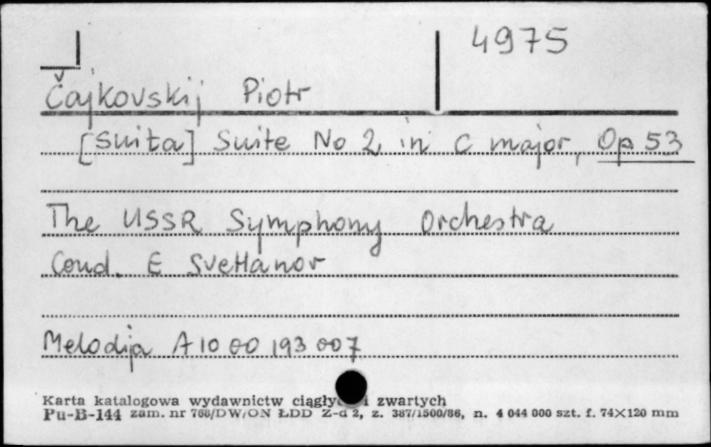 4975
Čajkovskij Piotr
[Suita] Suite No 2 in C major, Op 53
The USSR Symphony Orchestra
Cond. E Svetlanov
Melodija A10 00 193 007
Karta katalogowa wydawnictw zwartych
Pu-B-144 zam. nr 766/DW/ON ŁDD Z-d 2, z. 387/1500/86, n. 4 044 000 szt. f. 74×120 mm